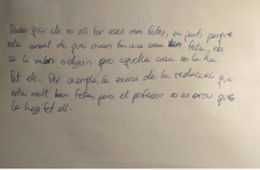 Penso que ell no vol fer coses ben fetes, en part, perquè
està cansat de que quan fa una cosa ben feta, no
se li valori o diguin que aquella cosa no la ha
fet ell. Per exemple, la excusa de la redacció que
esta molt ben feta, pero el professor no es creu que
la hagi fet ell.